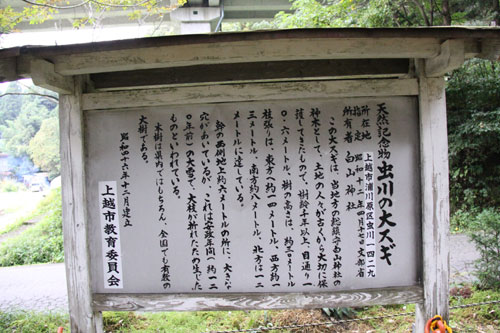 天然記念物 虫川の大スギ
所在地 上越市浦川原区虫川一四二九
指定 昭和十二年四月十七日文部省
所有者 白山神社
この大スギは、当地方の総鎮守白山神社の
神木として、土地の人々が古くから大切に保
護してきたもので、樹齢千年以上、目通り一
〇・六メートル、樹の高さは、約三〇メートル
枝張りは、東方へ約一四メートル、西方約一
三メートル、南方約八メートル、北方は一二
メートルに達している。
幹の西側地上約六メートルの所に、大きな
穴があいているが、これは安政年間(約一二
〇年前)の大雪で、大枝が折れたために生じた
ものといわれている。
本樹は県内ではもちろん、全国でも有数の
大樹である。
昭和四十六年十二月建立
上越市教育委員会